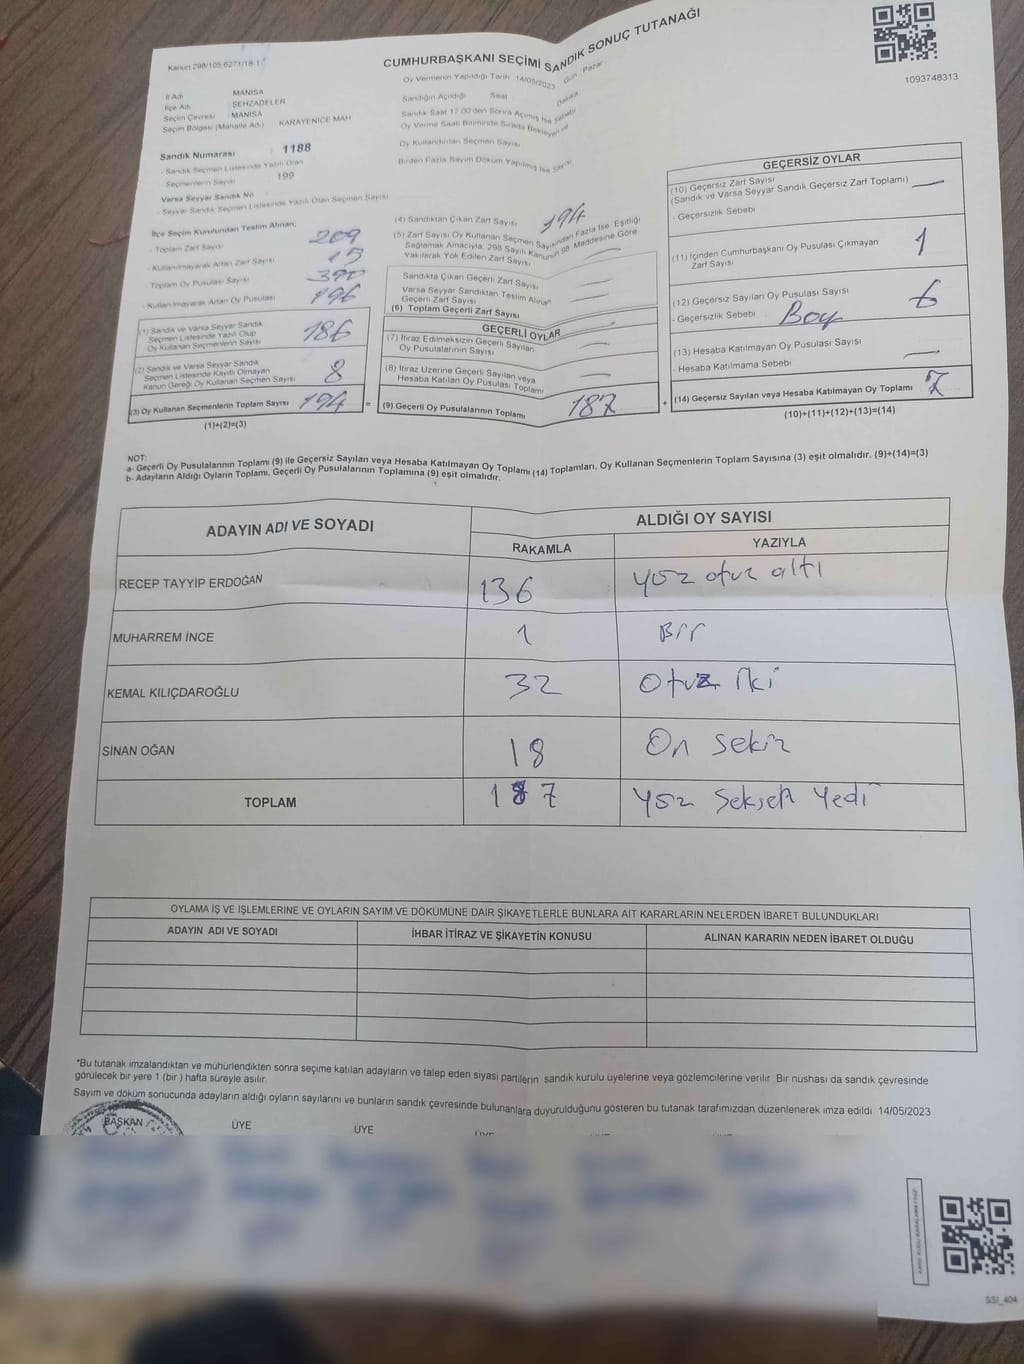 Kanun 298/105-6271/18-1
CUMHURBAŞKANI SEÇİMİ SANDIK SONUÇ TUTANAĞI
1093748313
İl Adı : MANİSA
İlçe Adı : ŞEHZADELER
Seçim Çevresi : MANİSA
Seçim Bölgesi (Mahalle Adı) : KARAYENİCE MAH
Sandık Numarası : 1188
- Sandık Seçmen Listesinde Yazılı Olan
Seçmenlerin Sayısı : 199
Varsa Seyyar Sandık No
- Seyyar Sandık Seçmen Listesinde Yazılı Olan Seçmen Sayısı
İlçe Seçim Kurulundan Teslim Alınan;
- Toplam Zarf Sayısı 209
- Kullanılmayarak Artan Zarf Sayısı 15
- Toplam Oy Pusulası Sayısı 390
- Kullanılmayarak Artan Oy Pusulası 196
(1) Sandık ve Varsa Seyyar Sandık
Seçmen Listesinde Yazılı Olup
Oy Kullanan Seçmenlerin Sayısı 186
(2) Sandık ve Varsa Seyyar Sandık
Seçmen Listesinde Kayıtlı Olmayan
Kanun Gereği Oy Kullanan Seçmen Sayısı 8
(3) Oy Kullanan Seçmenlerin Toplam Sayısı 194 =
(1)+(2)=(3)
Oy Vermenin Yapıldığı Tarih 14/05/2023 Gün : Pazar
Sandığın Açıldığı Saat Dakika
Sandık Saat 17.00'den Sonra Açılmış İse Sebebi
Oy Verme Saati Bitiminde Sırada Bekleyen ve
Oy Kullandırılan Seçmen Sayısı
Birden Fazla Sayım Döküm Yapılmış İse Sayısı
(4) Sandıktan Çıkan Zarf Sayısı 194
(5) Zarf Sayısı Oy Kullanan Seçmen Sayısından Fazla İse, Eşitliği
Sağlamak Amacıyla, 298 Sayılı Kanunun 98. Maddesine Göre
Yakılarak Yok Edilen Zarf Sayısı
Sandıkta Çıkan Geçerli Zarf Sayısı
Varsa Seyyar Sandıktan Teslim Alınan
Geçerli Zarf Sayısı
(6) Toplam Geçerli Zarf Sayısı
GEÇERLİ OYLAR
(7) İtiraz Edilmeksizin Geçerli Sayılan
Oy Pusulalarının Sayısı
(8) İtiraz Üzerine Geçerli Sayılan veya
Hesaba Katılan Oy Pusulası Toplamı
(9) Geçerli Oy Pusulalarının Toplamı 187 +
GEÇERSİZ OYLAR
(10) Geçersiz Zarf Sayısı
(Sandık ve Varsa Seyyar Sandık Geçersiz Zarf Toplamı)
- Geçersizlik Sebebi
(11) İçinden Cumhurbaşkanı Oy Pusulası Çıkmayan
Zarf Sayısı 1
(12) Geçersiz Sayılan Oy Pusulası Sayısı 6
- Geçersizlik Sebebi
(13) Hesaba Katılmayan Oy Pusulası Sayısı
- Hesaba Katılmama Sebebi
(14) Geçersiz Sayılan veya Hesaba Katılmayan Oy Toplamı 7
(10)+(11)+(12)+(13)=(14)
NOT:
a- Geçerli Oy Pusulalarının Toplamı (9) ile Geçersiz Sayılan veya Hesaba Katılmayan Oy Toplamı (14) Toplamları, Oy Kullanan Seçmenlerin Toplam Sayısına (3) eşit olmalıdır. (9)+(14)=(3)
b- Adayların Aldığı Oyların Toplamı, Geçerli Oy Pusulalarının Toplamına (9) eşit olmalıdır.
ADAYIN ADI VE SOYADI ALDIĞI OY SAYISI
RAKAMLA YAZIYLA
RECEP TAYYİP ERDOĞAN 136 Yüz otuz altı
MUHARREM İNCE 1 Bir
KEMAL KILIÇDAROĞLU 32 Otuz iki
SİNAN OĞAN 18 On sekiz
TOPLAM 187 Yüz Seksen Yedi
OYLAMA İŞ VE İŞLEMLERİNE VE OYLARIN SAYIM VE DÖKÜMÜNE DAİR ŞİKAYETLERLE BUNLARA AİT KARARLARIN NELERDEN İBARET BULUNDUKLARI
ADAYIN ADI VE SOYADI İHBAR İTİRAZ VE ŞİKAYETİN KONUSU ALINAN KARARIN NEDEN İBARET OLDUĞU
*Bu tutanak imzalandıktan ve mühürlendikten sonra seçime katılan adayların ve talep eden siyasi partilerin sandık kurulu üyelerine veya gözlemcilerine verilir. Bir nüshası da sandık çevresinde
görülecek bir yere 1 (bir) hafta süreyle asılır.
Sayım ve döküm sonucunda adayların aldığı oyların sayılarını ve bunların sandık çevresinde bulunanlara duyurulduğunu gösteren bu tutanak tarafımızdan düzenlenerek imza edildi 14/05/2023
BAŞKAN ÜYE ÜYE
SSI_404